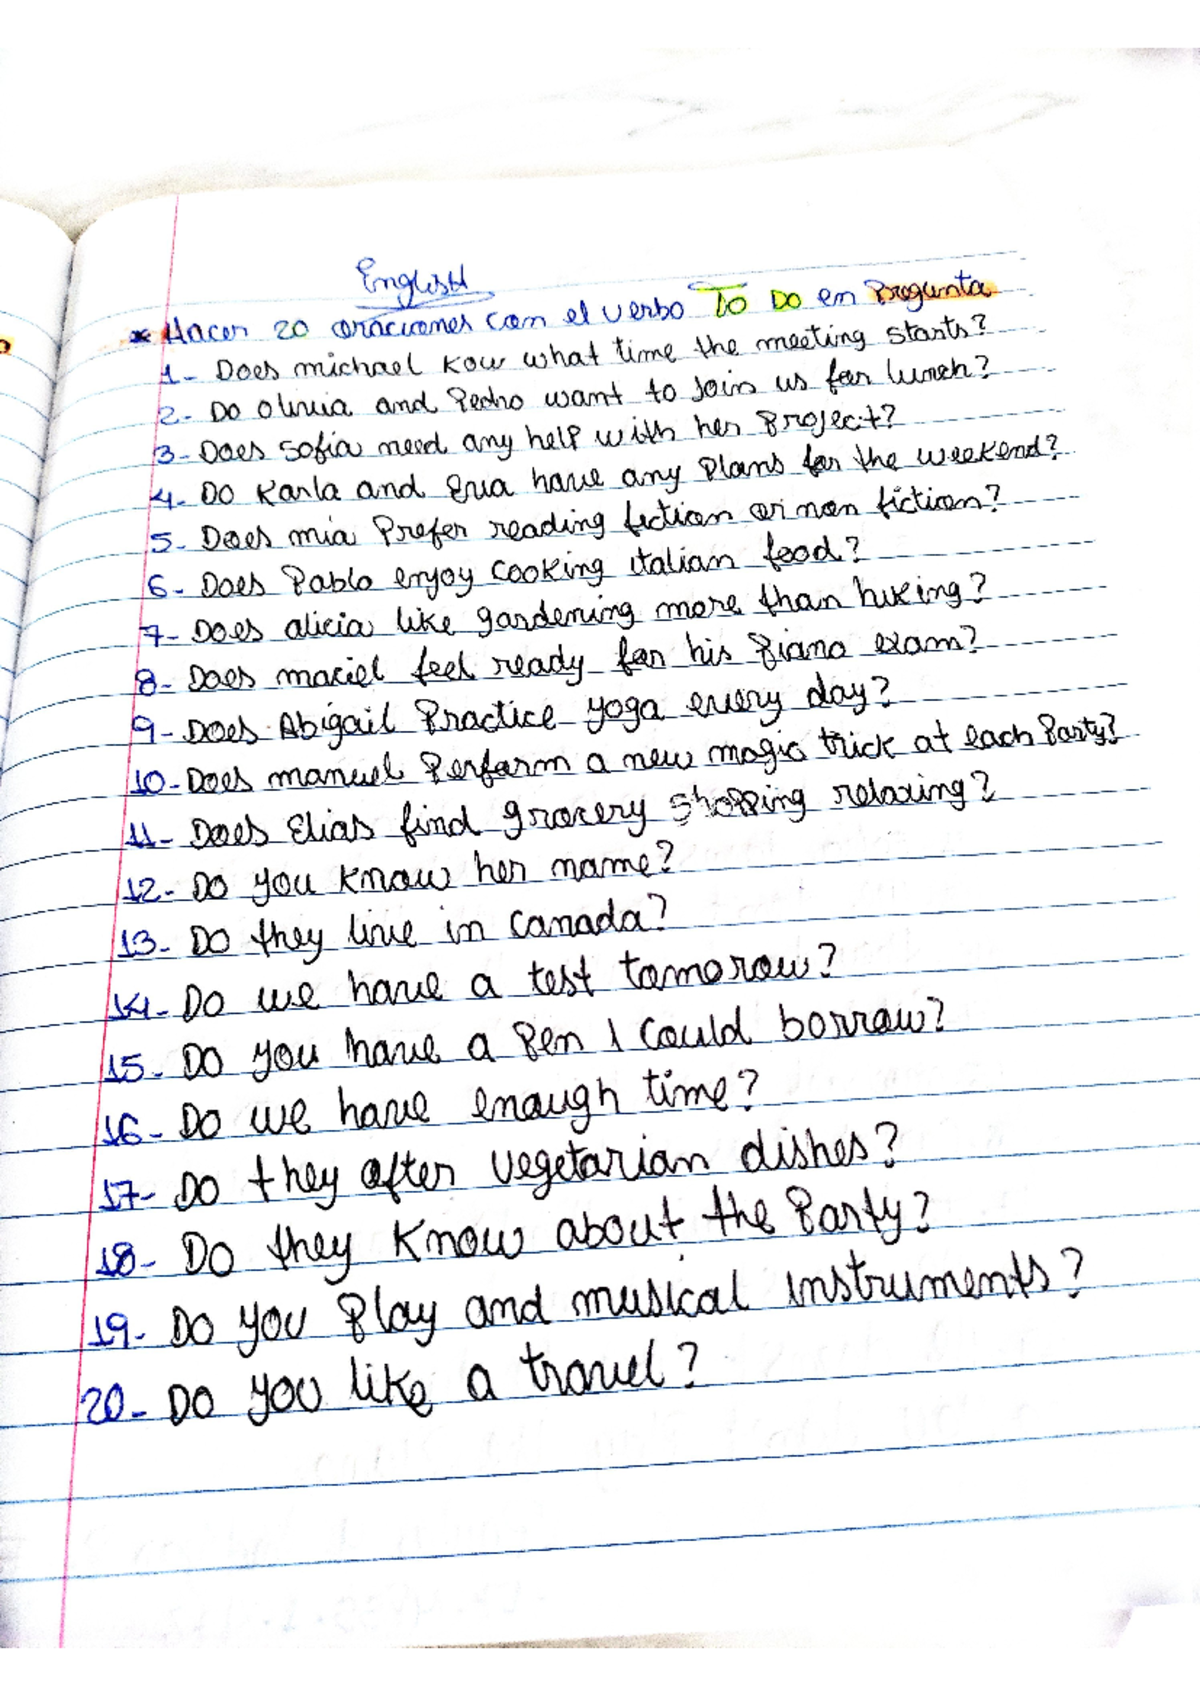 English
* Hacer 20 oraciones con el verbo TO DO en Pregunta
1- Does michael Kow what time the meeting starts?
2- Do olivia and Pedro want to Join us for lunch?
3- Does sofia need any help with her Project?
4- Do Karla and Eva have any Plans for the weekend?
5- Does mia Prefer reading fiction or non fiction?
6- Does Pablo enjoy cooking italian food?
7- Does alicia like gardening more than hiking?
8- Does maciel feel ready for his Piano exam?
9- Does Abigail Practice yoga every day?
10- Does manuel Perform a new magic trick at each Party?
11- Does Elias find grocery shopping relaxing?
12- Do you know her name?
13- Do they live in Canada?
14- Do we have a test tomorow?
15- Do you have a Pen I could borrow?
16- Do we have enough time?
17- Do they after vegetarian dishes?
18- Do they Know about the Party?
19- Do you Play and musical instruments?
20- Do you like a travel?